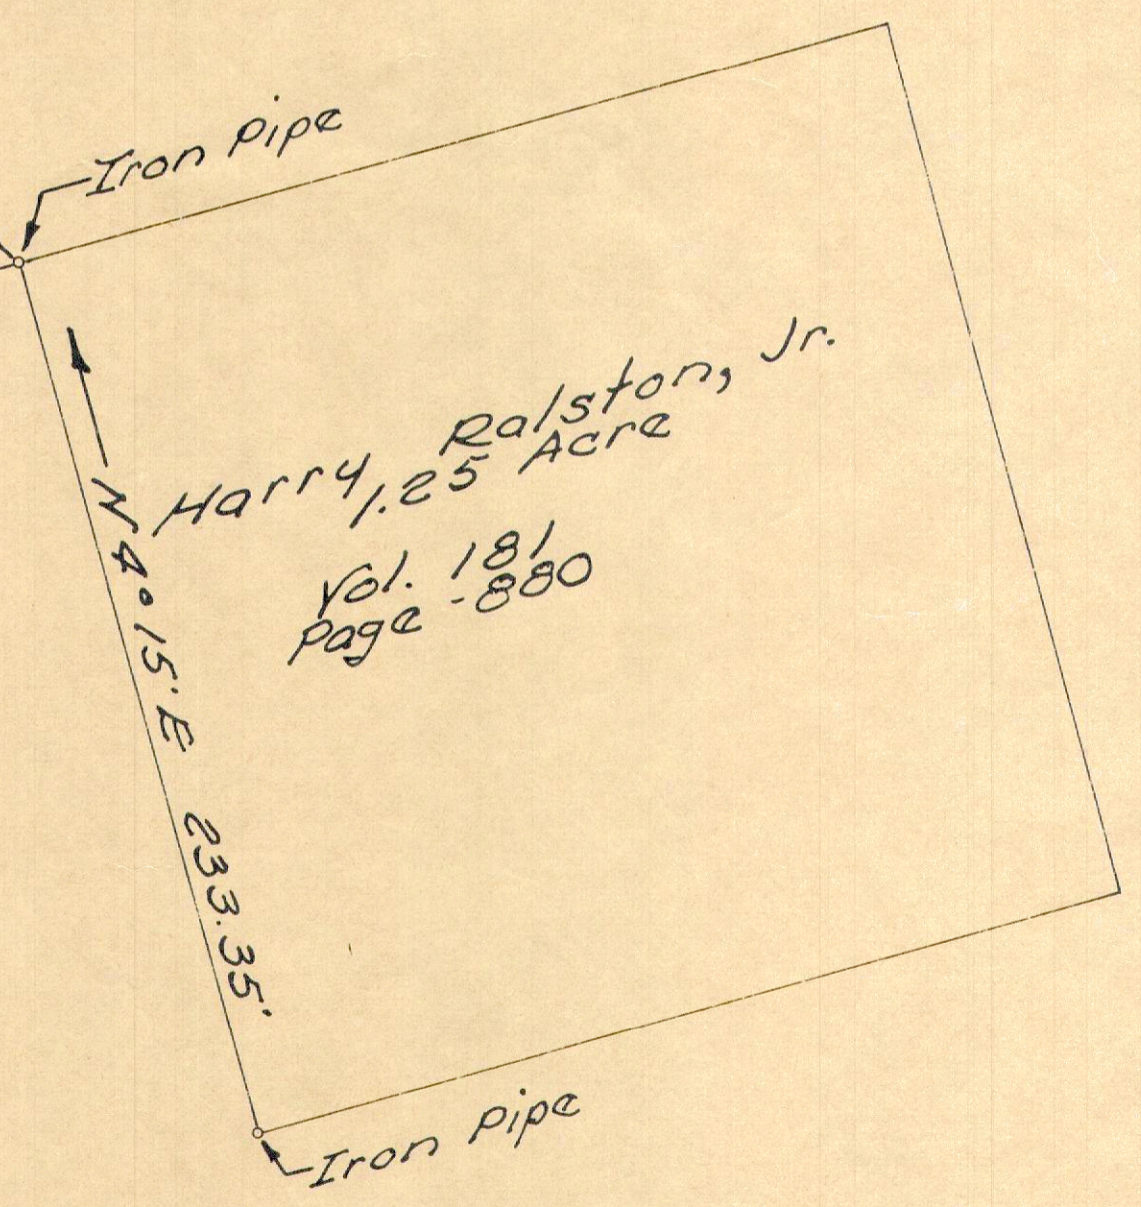 Iron Pipe
Harry Ralston, Jr.
1.25 Acre
Vol. 181
Page - 880
N 4° 15' E 233.35'
Iron Pipe